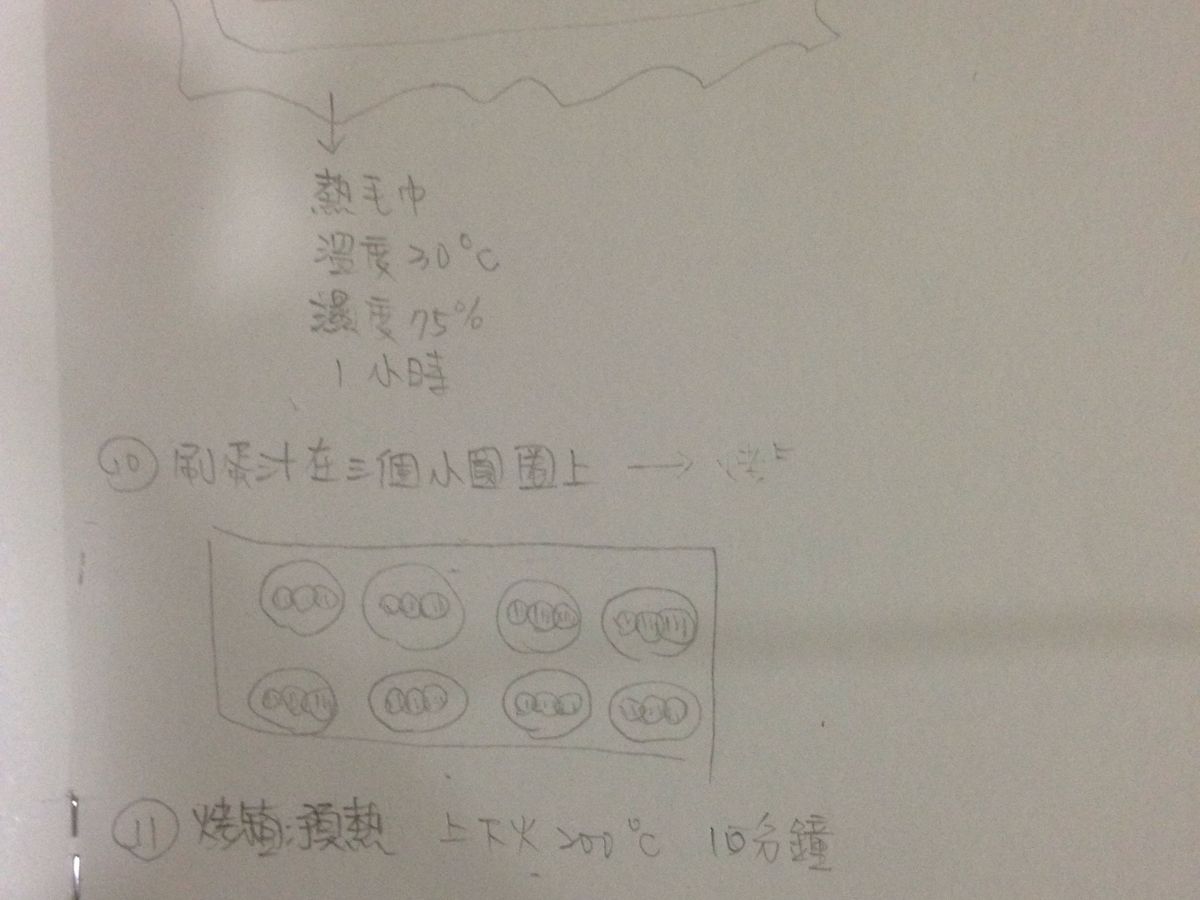 熱毛巾
溫度30°C
濕度75%
1小時
⑩ 刷蛋汁在三個小圓圈上 →
⑪ 烤箱預熱 上下火200°C 10分鐘